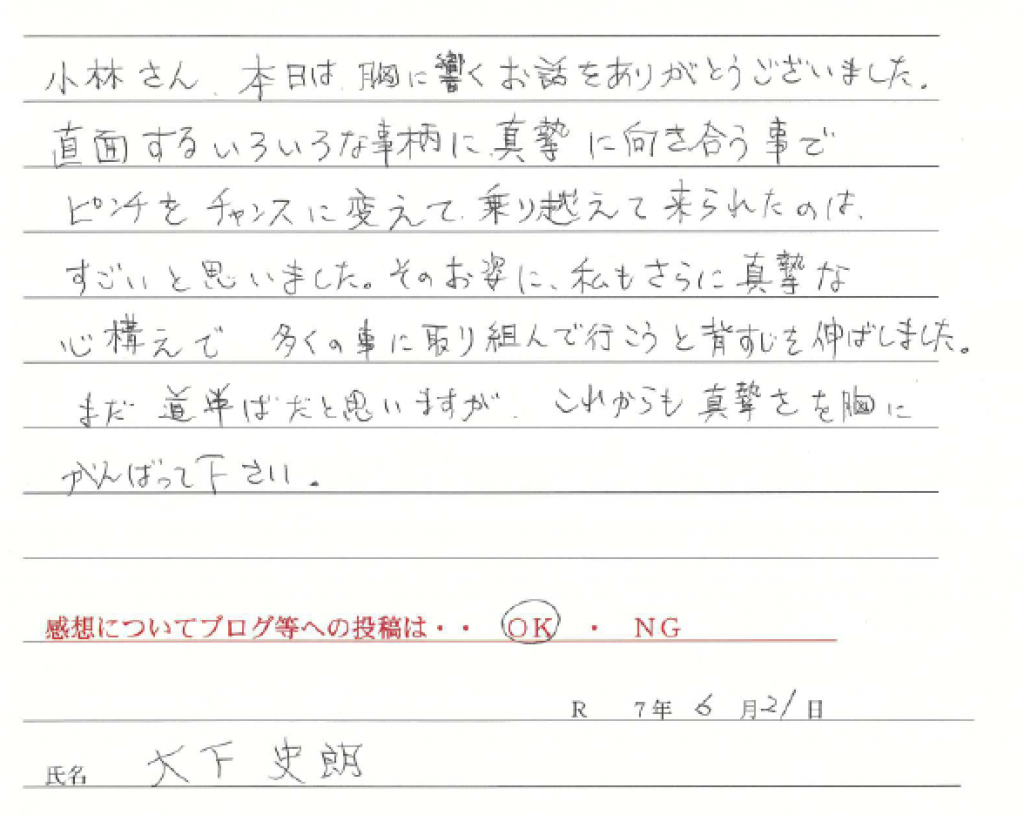 小林さん、本日は、胸に響くお話をありがとうございました。
直面するいろいろな事柄に、真摯に向き合う事で
ピンチをチャンスに変えて、乗り越えて来られたのは、
すごいと思いました。そのお姿に、私もさらに真摯な
心構えで 多くの事に取り組んで行こうと背すじを伸ばしました。
まだ 道半ばだと思いますが、これからも真摯さを胸に
がんばって下さい。
感想についてブログ等への投稿は・・ OK ・ NG
R 7年 6 月21日
氏名 大下 史朗